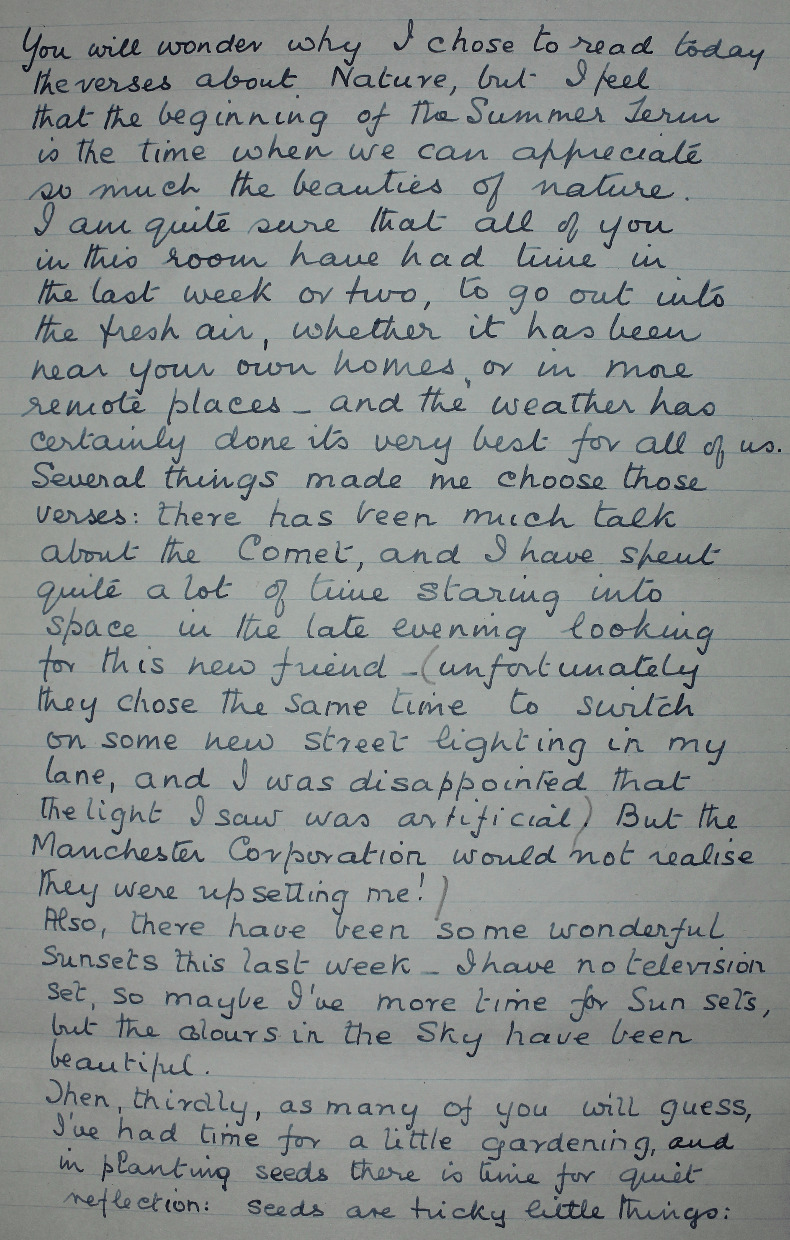 You will wonder why I chose to read today
the verses about Nature, but I feel
that the beginning of the Summer Term
is the time when we can appreciate
so much the beauties of nature.
I am quite sure that all of you
in this room have had time in
the last week or two, to go out into
the fresh air, whether it has been
near your own homes, or in more
remote places - and the weather has
certainly done its very best for all of us.
Several things made me choose those
verses: there has been much talk
about the Comet, and I have spent
quite a lot of time staring into
space in the late evening looking
for this new friend - (unfortunately
they chose the same time to switch
on some new street lighting in my
lane, and I was disappointed that
the light I saw was artificial) But the
Manchester Corporation would not realise
they were upsetting me!)
Also, there have been some wonderful
Sunsets this last week - I have no television
set, so maybe I've more time for Sun sets,
but the colours in the Sky have been
beautiful.
Then, thirdly, as many of you will guess,
I've had time for a little gardening, and
in planting seeds there is time for quiet
reflection: seeds are tricky little things: